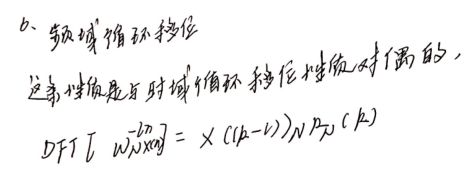 6、频域循环移位
这条性质是与时域循环移位性质对偶的,
DFT[ W_N^{-ln} x(n)] = X((k-l))_N R_N(k)